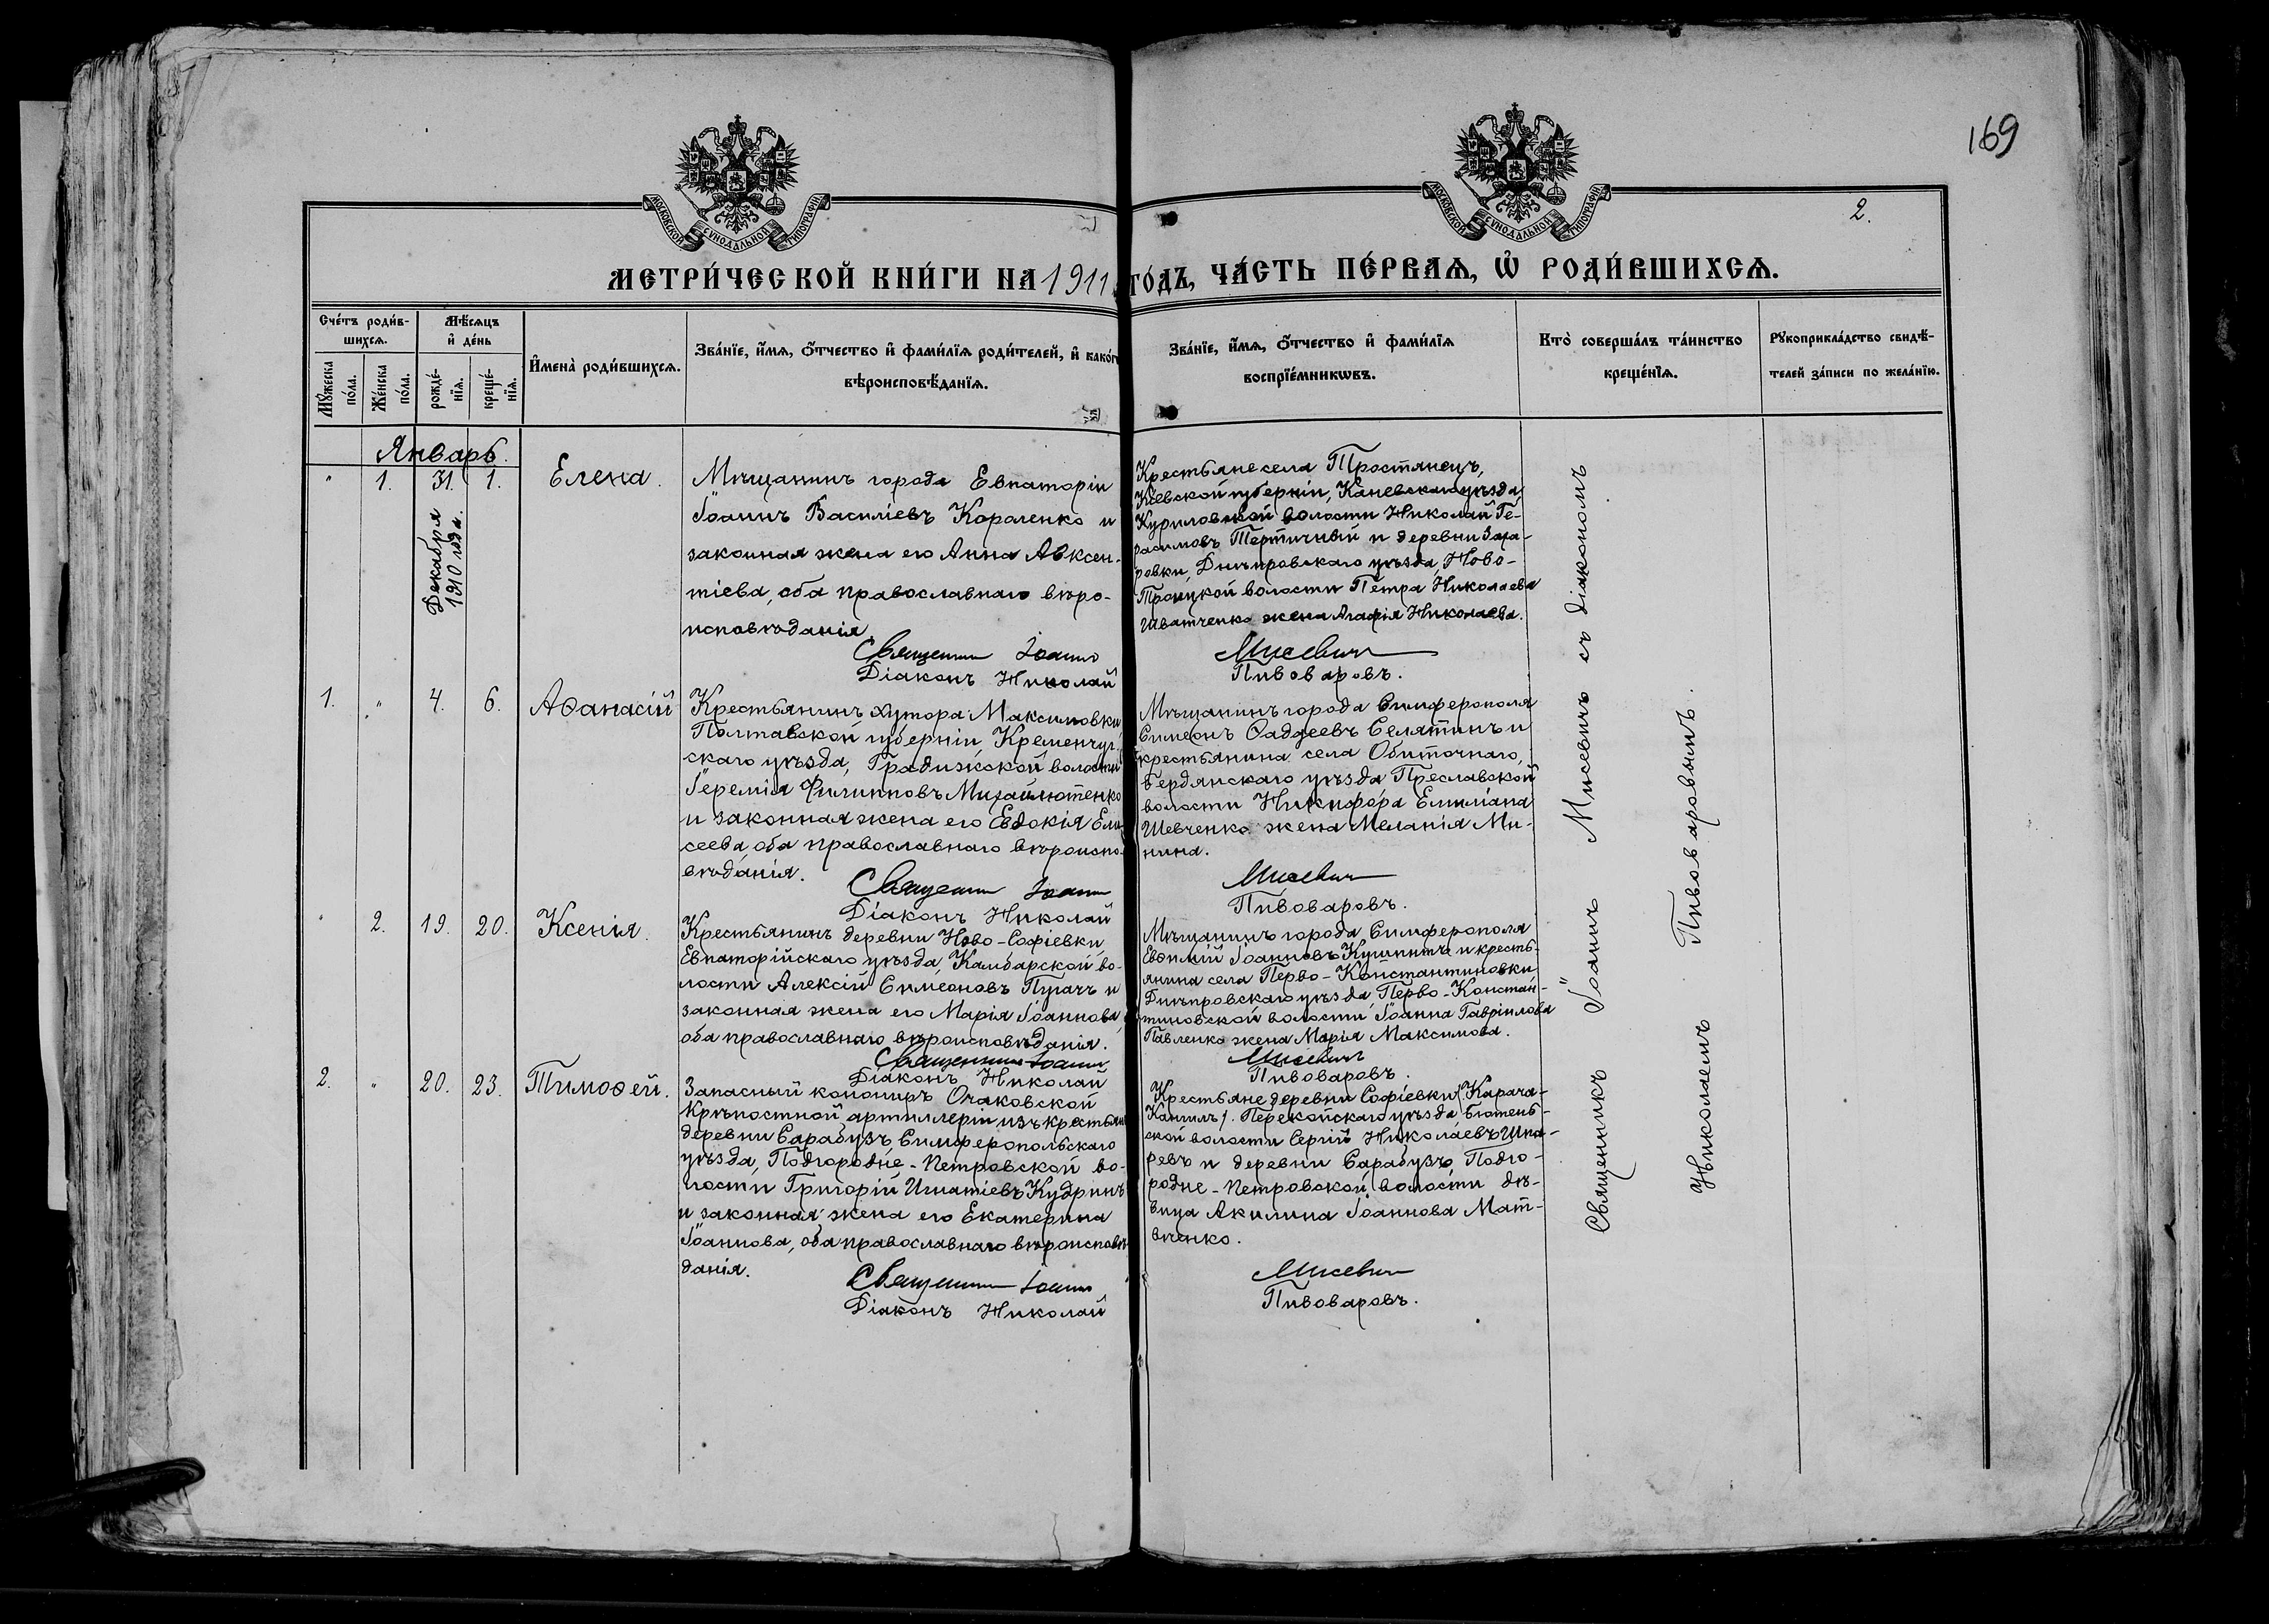 169
2.
МОСКОВСКОЙ СѴНОДАЛЬНОЙ ТИПОГРАФІИ
МОСКОВСКОЙ СѴНОДАЛЬНОЙ ТИПОГРАФІИ
МЕТРИ́ЧЕСКОЙ КНИ́ГИ НА 1911 ГО́ДЪ, ЧА́СТЬ ПЕ́РВАѦ, Ѽ РОДИ́ВШИХСѦ.
Сче́тъ роди́в-
шихсѧ.
Мꙋ́жеска по́ла.
Же́нска по́ла.
Мѣ́сѧцъ
и҆ де́нь
рожде́-
нїѧ.
креще́-
нїѧ.
И҆мена̀ роди́вшихсѧ.
Зва́нїе, и҆́мѧ, ѻ҆́тчество и҆ фами́лїѧ роди́телей, и҆ како́гѡ
вѣроисповѣ́данїѧ.
Зва́нїе, и҆́мѧ, ѻ҆́тчество и҆ фами́лїѧ
воспрїе́мникѡвъ.
Кто̀ соверша́лъ та́инство
креще́нїѧ.
Рꙋкоприкла́дство свидѣ́-
телей за́писи по жела́нїю.
Январь.
" 1. 31. 1. Елена.
Декабря
1910 года.
Мѣщанинъ города Евпаторіи
Іоаннъ Василіевъ Короленко и
законная жена его Анна Авксен-
тіева, оба православнаго вѣро-
исповѣданія.
Священникъ Іоаннъ
Діаконъ Николай
Крестьяне села Тростянецъ,
Кіевской губерніи, Каневскаго уѣзда,
Куриловской волости Николай Ге-
расимовъ Тертичный и деревни Заха-
ровки, Днѣпровскаго уѣзда, Ново-
Троицкой волости Петра Николаева
Иватченко жена Агафія Николаева.
Мисевичъ
Пивоваровъ.
1. " 4. 6. Аѳанасій
Крестьянинъ хутора Максимовки
Полтавской губерніи, Кременчуг-
скаго уѣзда, Градижской волости
Іеремія Филипповъ Михайлютенко
и законная жена его Евдокія Ели-
сеева, оба православнаго вѣроиспо-
вѣданія.
Священникъ Іоаннъ
Діаконъ Николай
Мѣщанинъ города Симферополя
Симеонъ Ѳаддеевъ Селятинъ и
крестьянина села Обиточнаго,
Бердянскаго уѣзда Преславской
волости Никифора Емиліана
Шевченко жена Меланія Ми-
нина.
Мисевичъ
Пивоваровъ.
" 2. 19. 20. Ксенія.
Крестьянинъ деревни Ново-Софіевки,
Евпаторійскаго уѣзда, Камбарской во-
лости Алексій Симеоновъ Пугачъ и
законная жена его Марія Іоаннова,
оба православнаго вѣроисповѣданія.
Священникъ Іоаннъ
Діаконъ Николай
Мѣщанинъ города Симферополя
Евѳимій Іоанновъ и кресть-
янина села Перво-Константиновки
Днѣпровскаго уѣзда, Перво-Констан-
тиновской волости Іоанна Гавріилова
Павленко жена Марія Максимова.
Мисевичъ
Пивоваровъ.
2. " 20. 23. Тимоѳей.
Запасный канониръ Очаковской
крѣпостной артиллеріи изъ крестьянъ
деревни Сарабузъ, Симферопольскаго
уѣзда, Подгородне-Петровской во-
лости Григорій Игнатіевъ Кудринъ
и законная жена его Екатерина
Іоаннова, оба православнаго вѣроисповѣ-
данія.
Священникъ Іоаннъ
Діаконъ Николай
Крестьяне деревни Софіевки /Карача-
Кангилъ/. Перекопскаго уѣзда Бютень-
ской волости Сергій Николаевъ Шпа-
ревъ и деревни Сарабузъ, Подго-
родне-Петровской волости дѣ-
вица Акилина Іоаннова Мат-
віенко.
Мисевичъ
Пивоваровъ.
Священникъ Іоаннъ Мисевичъ съ діакономъ
Николаемъ Пивоваровымъ.